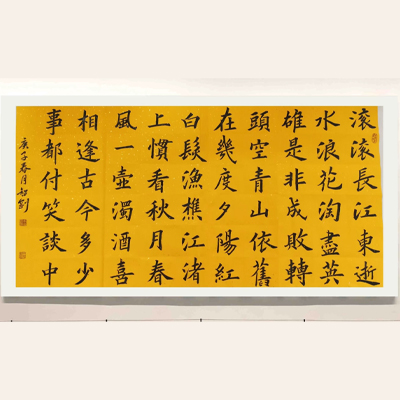 滚滚長江東逝
水浪花淘盡英
雄是非成敗轉
頭空青山依舊
在幾度夕陽紅
白髮漁樵江渚
上慣看秋月春
風一壺濁酒喜
相逢古今多少
事都付笑談中
庚子春月